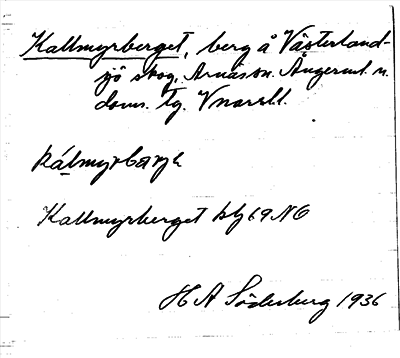 Kallmyrberget, berg å Västerland-
sjö skog, Arnäs sn. Ångerml. n.
doms. tg. V norrll.
kálmyrbærjk
Kallmyrberget bl 69 NO
H A Söderberg 1936